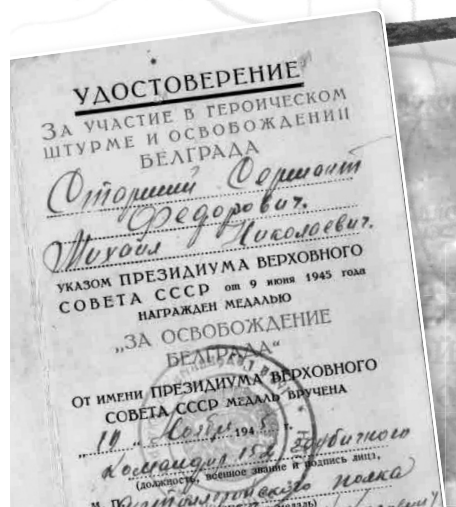 УДОСТОВЕРЕНИЕ
ЗА УЧАСТИЕ В ГЕРОИЧЕСКОМ
ШТУРМЕ И ОСВОБОЖДЕНИИ
БЕЛГРАДА
Старший Сержант
Федорович.
Михаил Николаевич.
УКАЗОМ ПРЕЗИДИУМА ВЕРХОВНОГО
СОВЕТА СССР от 9 июня 1945 года
НАГРАЖДЕН МЕДАЛЬЮ
„ЗА ОСВОБОЖДЕНИЕ
БЕЛГРАДА“
ОТ ИМЕНИ ПРЕЗИДИУМА ВЕРХОВНОГО
СОВЕТА СССР МЕДАЛЬ ВРУЧЕНА
Ноября 1945 г.
Командир
(должность, военное звание и подпись лица,
М. П. полка